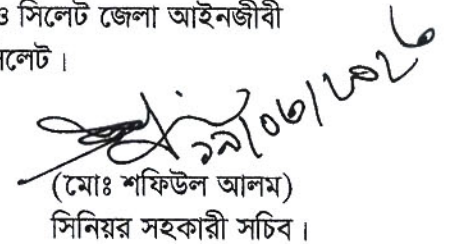 ও সিলেট জেলা আইনজীবী
লেট।
(মোঃ শফিউল আলম)
সিনিয়র সহকারী সচিব।